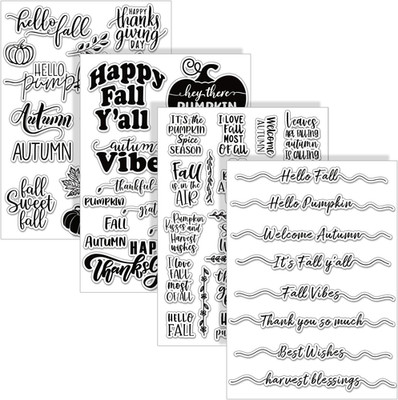 hello fall
HAPPY
thanks
giving
DAY
HELLO
pumpkin
Autumn
AUTUMN
fall
Sweet
fall
Happy
Fall
Y'all
hey, there
PUMPKIN
autumn
Vibes
thankful
PUMPKIN
FALL
AUTUMN
IT'S the
PUMPKIN
Spice
SEASON
I LOVE
FALL
MOST
OF ALL
Welcome
AUTUMN
Leaves
are falling
autumn
is calling
Fall
is in the
AIR
Pumpkin
kisses and
Harvest
wishes
I love
FALL
most
OF ALL
HELLO
FALL
Hello Fall
Hello Pumpkin
Welcome Autumn
It's Fall y'all
Fall Vibes
Thank you so much
Best Wishes
harvest blessings